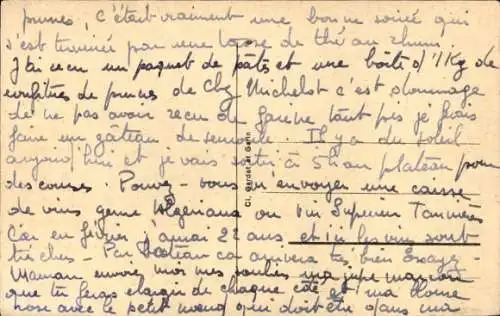 prunes, c'était vraiment une bonne soirée qui
s'est terminée par une tasse de thé au rhum.
J'ai reçu un paquet de pâtes et une boîte d'1 Kg de
confitures de prunes de chez Michelot c'est dommage
de ne pas avoir reçu de farine tant pis je ferais
faire un gâteau de semoule. Il y a du soleil
aujourd'hui et je vais sortir à 5 h au plateau pour
des courses. Pouvez-vous m'envoyer une caisse
de vins genre ou vin Supérieur
Car en février j'aurai 22 ans et ici les vins sont
très chers - Par bateau ça arrivera très bien Essayez-
Maman envoie moi mes souliers ma jupe marron
que tu feras élargir de chaque côté et ma
rose avec le petit nœud qui doit être dans ma
Cl. Gardet et Garin